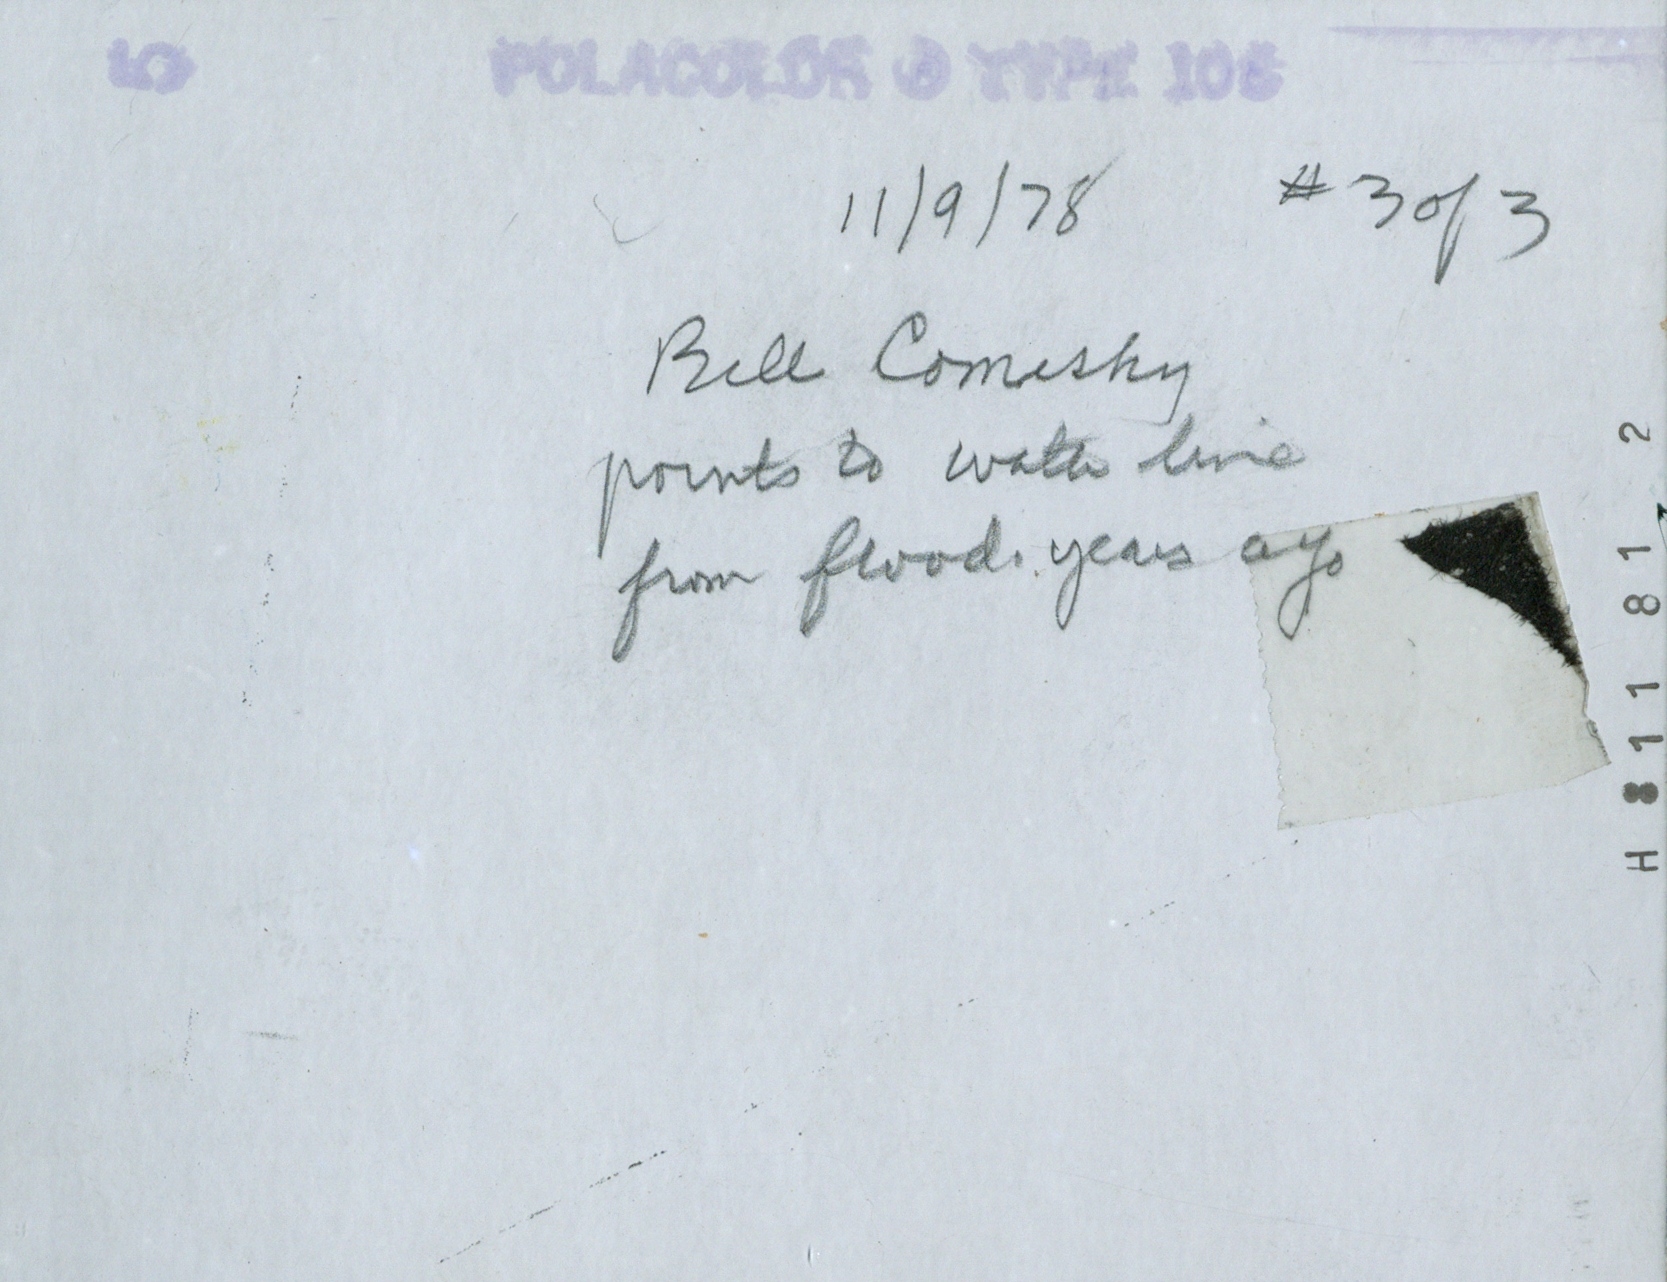 5 POLACOLOR ® TYPE 108
11/9/78 #3 of 3
Bill Comesky
points to water line
from flood. years ago
H 811 81 2